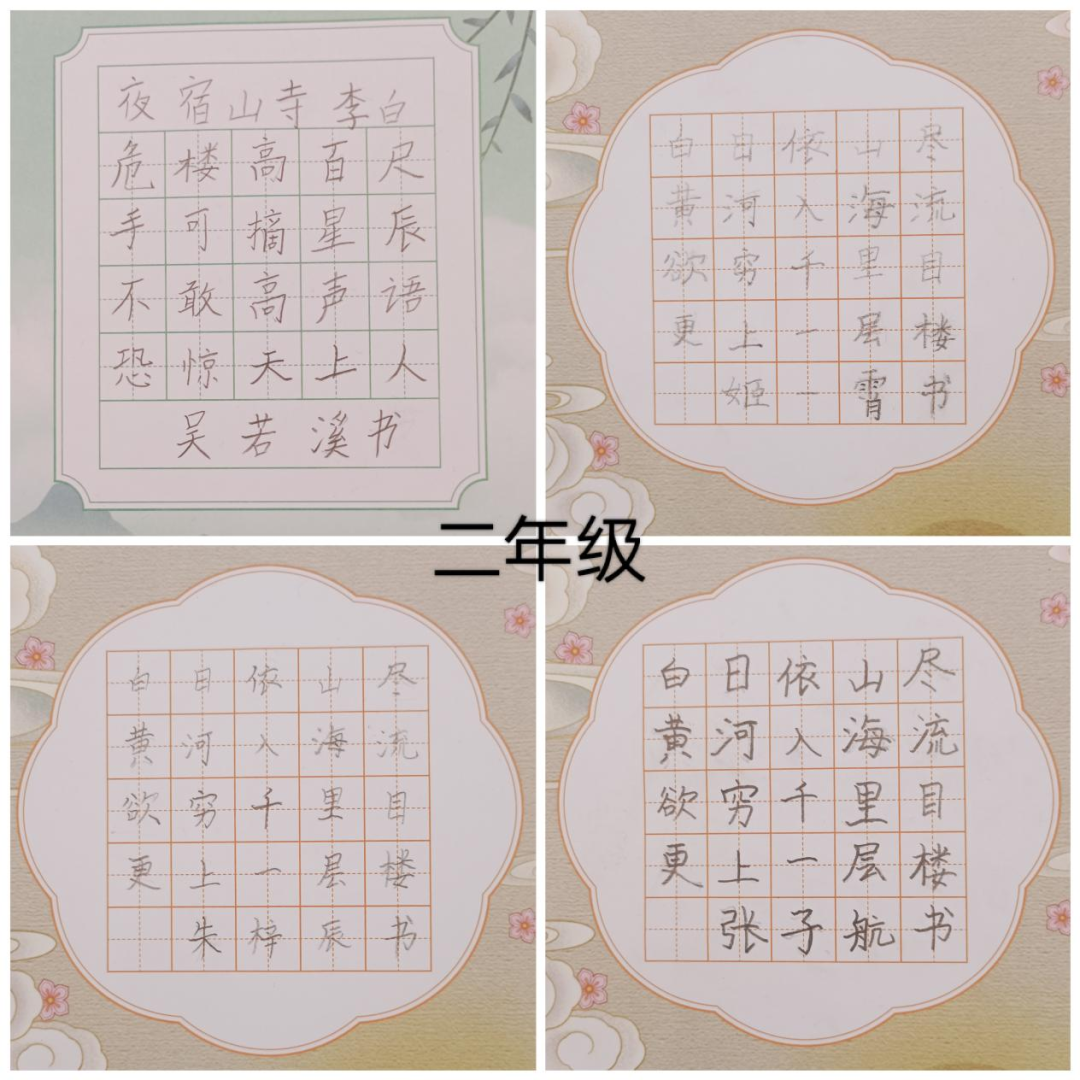 夜宿山寺 李白
危楼高百尺
手可摘星辰
不敢高声语
恐惊天上人
吴若溪书
白日依山尽
黄河入海流
欲穷千里目
更上一层楼
姬一霄书
二年级
白日依山尽
黄河入海流
欲穷千里目
更上一层楼
朱梓辰书
白日依山尽
黄河入海流
欲穷千里目
更上一层楼
张子航书